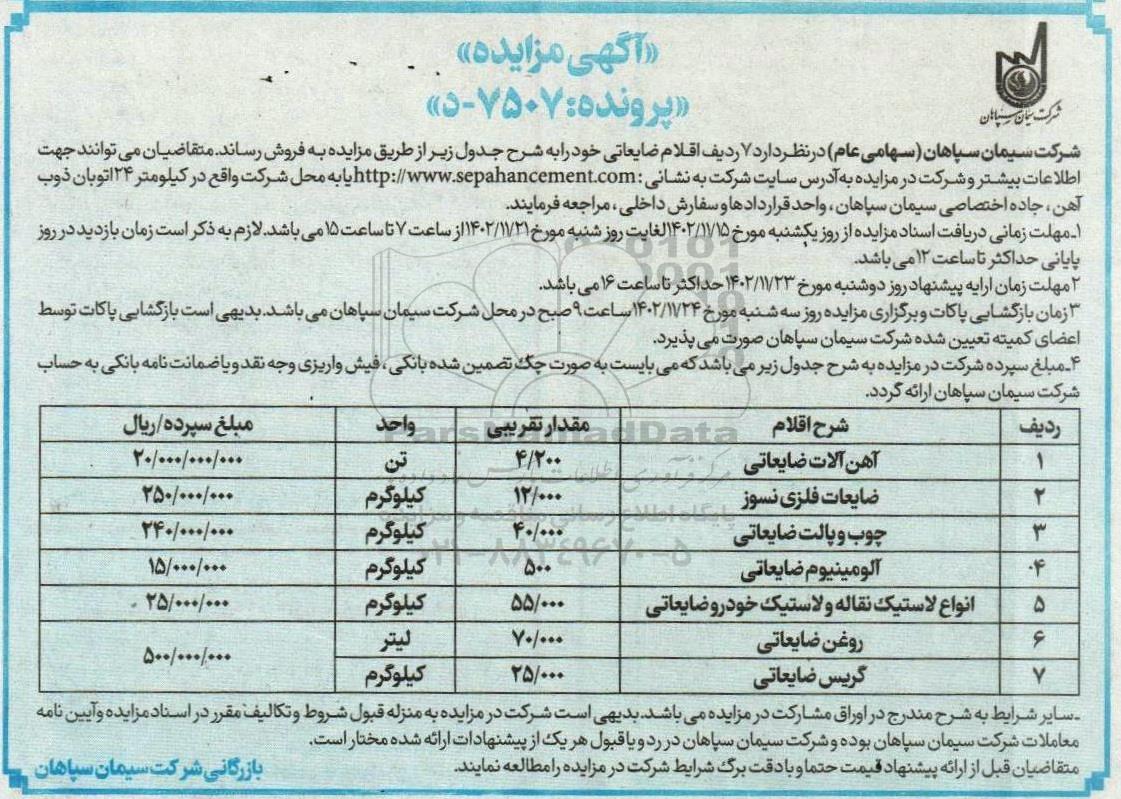 «آگهی مزایده»
«پرونده: ۷۵۰۷-د»
شرکت سیمان سپاهان
شرکت سیمان سپاهان (سهامی عام) در نظر دارد ۷ ردیف اقلام ضایعاتی خود را به شرح جدول زیر از طریق مزایده به فروش رساند. متقاضیان می توانند جهت
اطلاعات بیشتر و شرکت در مزایده به آدرس سایت شرکت به نشانی: http://www.sepahancement.com یا به محل شرکت واقع در کیلومتر ۲۴ اتوبان ذوب
آهن، جاده اختصاصی سیمان سپاهان، واحد قراردادها و سفارش داخلی، مراجعه فرمایند.
۱ـ مهلت زمانی دریافت اسناد مزایده از روز یکشنبه مورخ ۱۴۰۲/۱۱/۱۵ لغایت روز شنبه مورخ ۱۴۰۲/۱۱/۲۱ از ساعت ۷ تا ساعت ۱۵ می باشد. لازم به ذکر است زمان بازدید در روز
پایانی حداکثر تا ساعت ۱۲ می باشد.
۲ مهلت زمان ارایه پیشنهاد روز دوشنبه مورخ ۱۴۰۲/۱۱/۲۳ حداکثر تا ساعت ۱۶ می باشد.
۳ زمان بازگشایی پاکات و برگزاری مزایده روز سه شنبه مورخ ۱۴۰۲/۱۱/۲۴ ساعت ۹ صبح در محل شرکت سیمان سپاهان می باشد. بدیهی است بازگشایی پاکات توسط
اعضای کمیته تعیین شده شرکت سیمان سپاهان صورت می پذیرد.
۴ـ مبلغ سپرده شرکت در مزایده به شرح جدول زیر می باشد که می بایست به صورت چک تضمین شده بانکی، فیش واریزی وجه نقد و یا ضمانت نامه بانکی به حساب
شرکت سیمان سپاهان ارائه گردد.
ردیف شرح اقلام مقدار تقریبی واحد مبلغ سپرده/ریال
۱ آهن آلات ضایعاتی ۴/۲۰۰ تن ۲۰/۰۰۰/۰۰۰/۰۰۰
۲ ضایعات فلزی نسوز ۱۲/۰۰۰ کیلوگرم ۲۵۰/۰۰۰/۰۰۰
۳ چوب و پالت ضایعاتی ۴۰/۰۰۰ کیلوگرم ۲۴۰/۰۰۰/۰۰۰
۴ آلومینیوم ضایعاتی ۵۰۰ کیلوگرم ۱۵/۰۰۰/۰۰۰
۵ انواع لاستیک نقاله و لاستیک خودرو ضایعاتی ۵۵/۰۰۰ کیلوگرم ۲۵/۰۰۰/۰۰۰
۶ روغن ضایعاتی ۷۰/۰۰۰ لیتر ۵۰۰/۰۰۰/۰۰۰
۷ گریس ضایعاتی ۲۵/۰۰۰ کیلوگرم
ParsNamadData
۰۲۱-۸۸۳۴۹۶۷۰-۵
ـ سایر شرایط به شرح مندرج در اوراق مشارکت در مزایده می باشد. بدیهی است شرکت در مزایده به منزله قبول شروط و تکالیف مقرر در اسناد مزایده و آیین نامه
معاملات شرکت سیمان سپاهان بوده و شرکت سیمان سپاهان در رد و یا قبول هر یک از پیشنهادات ارائه شده مختار است.
متقاضیان قبل از ارائه پیشنهاد قیمت حتما و با دقت برگ شرایط شرکت در مزایده را مطالعه نمایند.
بازرگانی شرکت سیمان سپاهان